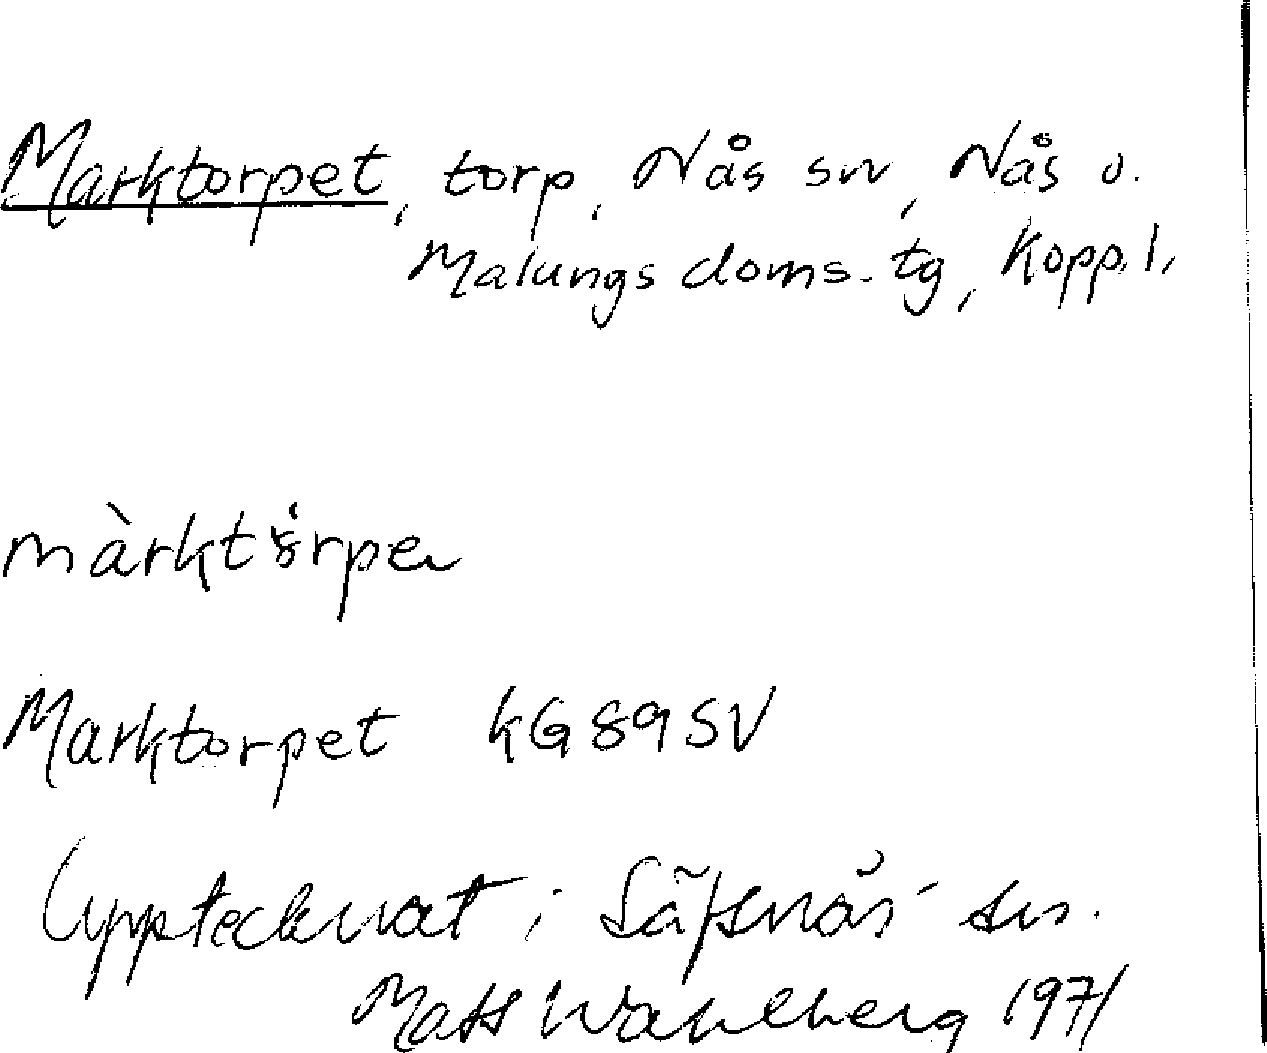 Marktorpet, torp, Nås sn, Nås o.
Malungs doms. tg, Kopp. l.
màrktörpe
Marktorpet KG 89 SV
Upptecknat i Säfsnäs sn.
Mats Wahlberg 1971